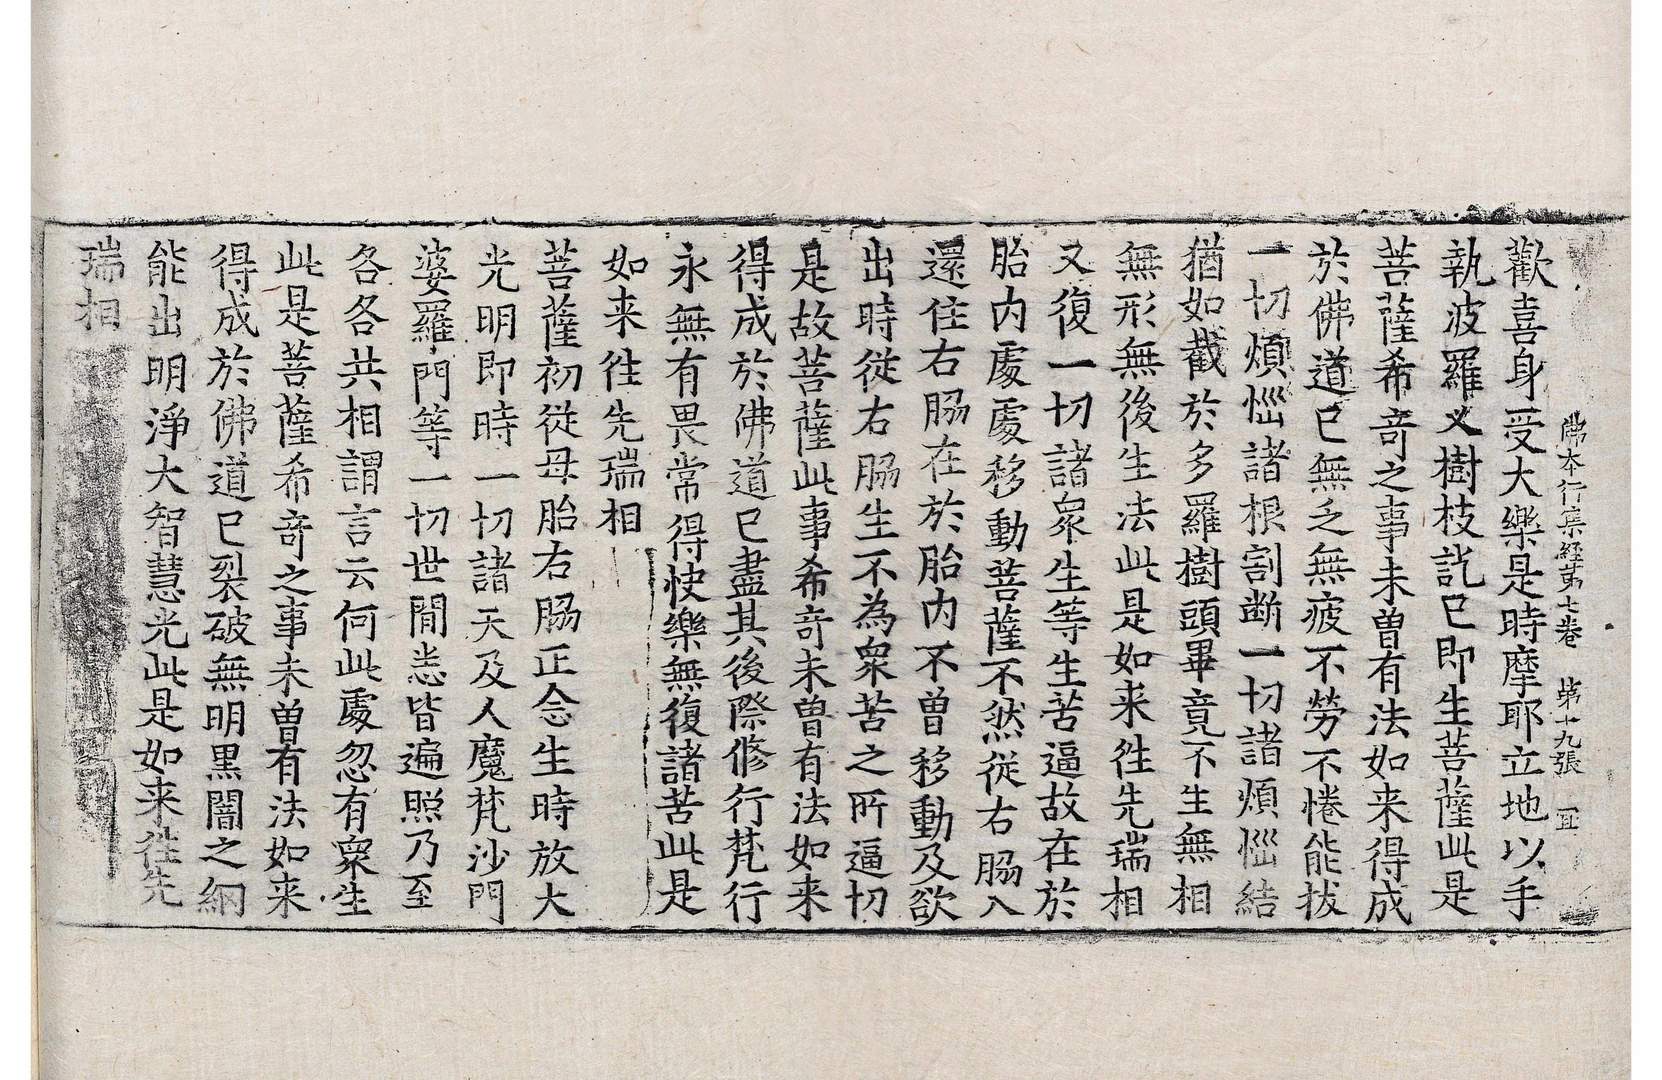 佛本行集經第七卷 第十九張 宜
歡喜身受大樂是時摩耶立地以手
執波羅叉樹枝訖已即生菩薩此是
菩薩希竒之事未曽有法如来得成
於佛道已無乏無疲不勞不惓能拔
一切煩惱諸根割断一切諸煩惱結
猶如截於多羅樹頭畢竟不生無相
無形無後生法此是如来往先瑞相
又復一切諸衆生等生苦逼故在於
胎内處處移動菩薩不然従右脇入
還住右脇在於胎内不曽移動及欲
出時従右脇生不為衆苦之所逼切
是故菩薩此事希竒未曽有法如来
得成於佛道已盡其後際修行梵行
永無有畏常得快樂無復諸苦此是
如来往先瑞相
菩薩初従母胎右脇正念生時放大
光明即時一切諸天及人魔梵沙門
婆羅門等一切世間悉皆遍照乃至
各各共相謂言云何此處忽有衆生
此是菩薩希竒之事未曽有法如来
得成於佛道已裂破無明黒闇之網
能出明淨大智慧光此是如来往先
瑞相